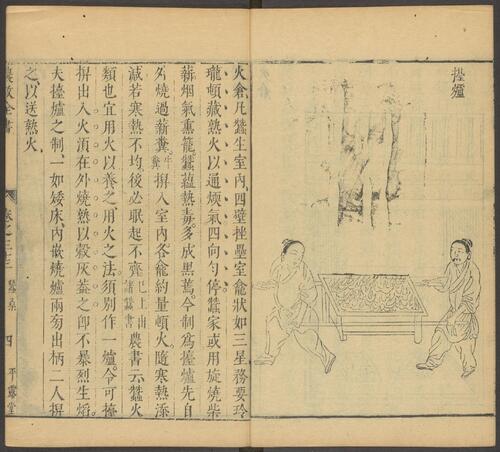 擡爐
火倉凡蠶生室內四壁挫壘室龕狀如三星務要玲
瓏頓藏熟火以通煖氣四向勻停蠶家或用旋燒柴
薪烟氣熏籠蠶蘊熱毒多成黑蔫今制爲擡爐先自
外燒過薪糞牛糞入室內各龕約量頓火隨寒熱添
減若寒熱不均後必眠起不齊已上出諸蠶書農書云蠶火
類也宜用火以養之用火之法須別作一爐令可擡
出入火湏在外燒熟以穀灰蓋之卽不暴烈生熖
夫擡爐之制一如矮床內嵌燒爐兩旁出柄二人
之以送熟火
農政全書 卷之三十三 蠶桑 四 平露堂